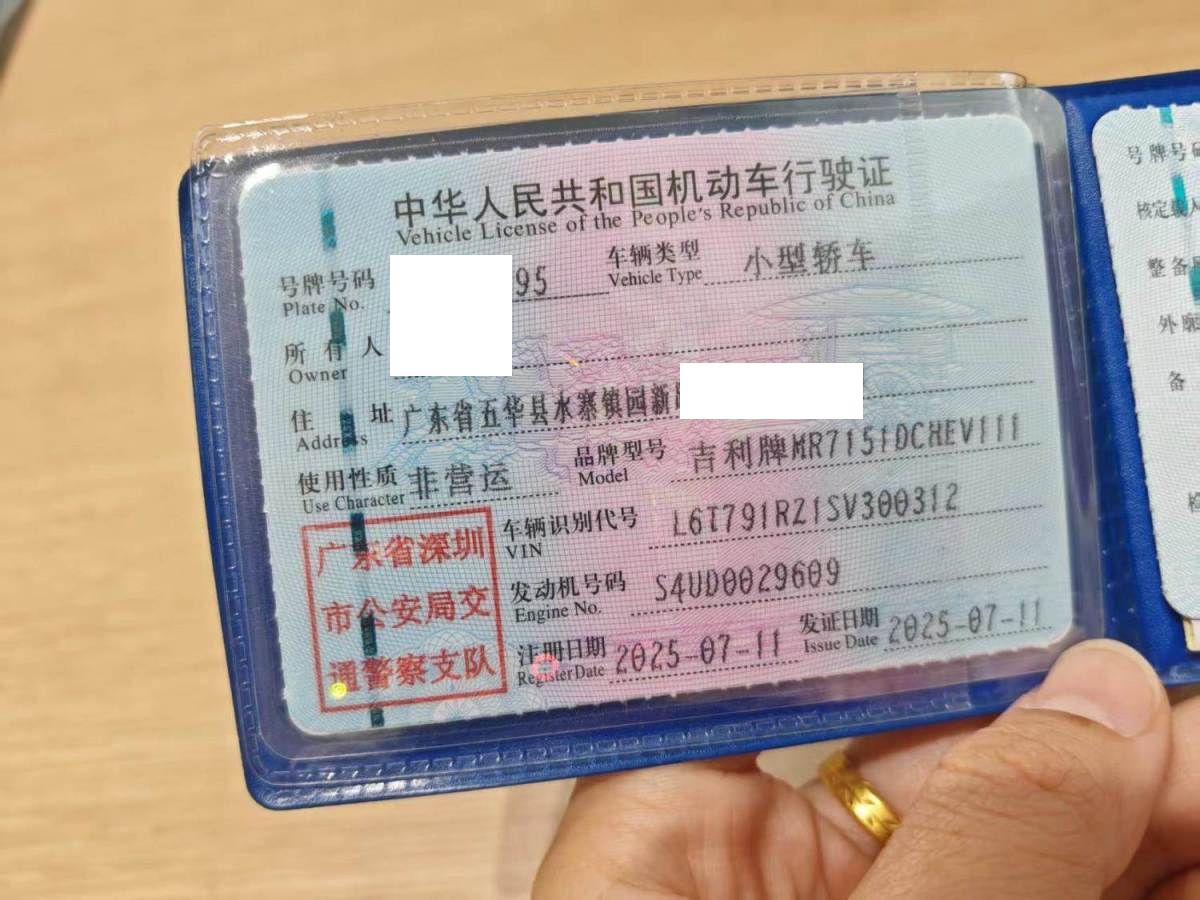 中华人民共和国机动车行驶证
Vehicle License of the People's Republic of China
号牌号码 95 车辆类型 小型轿车
Plate No. Vehicle Type
所有人
Owner
住址 广东省五华县水寨镇园新
Address
使用性质 非营运 品牌型号 吉利牌MR7151DCHEV111
Use Character Model
车辆识别代号 L6T791RZ1SV300312
VIN
发动机号码 S4UD0029609
Engine No.
注册日期 2025-07-11 发证日期 2025-07-11
Register Date Issue Date
广东省深圳
市公安局交
通警察支队
号牌号码
核定载人
整备
外廓
备